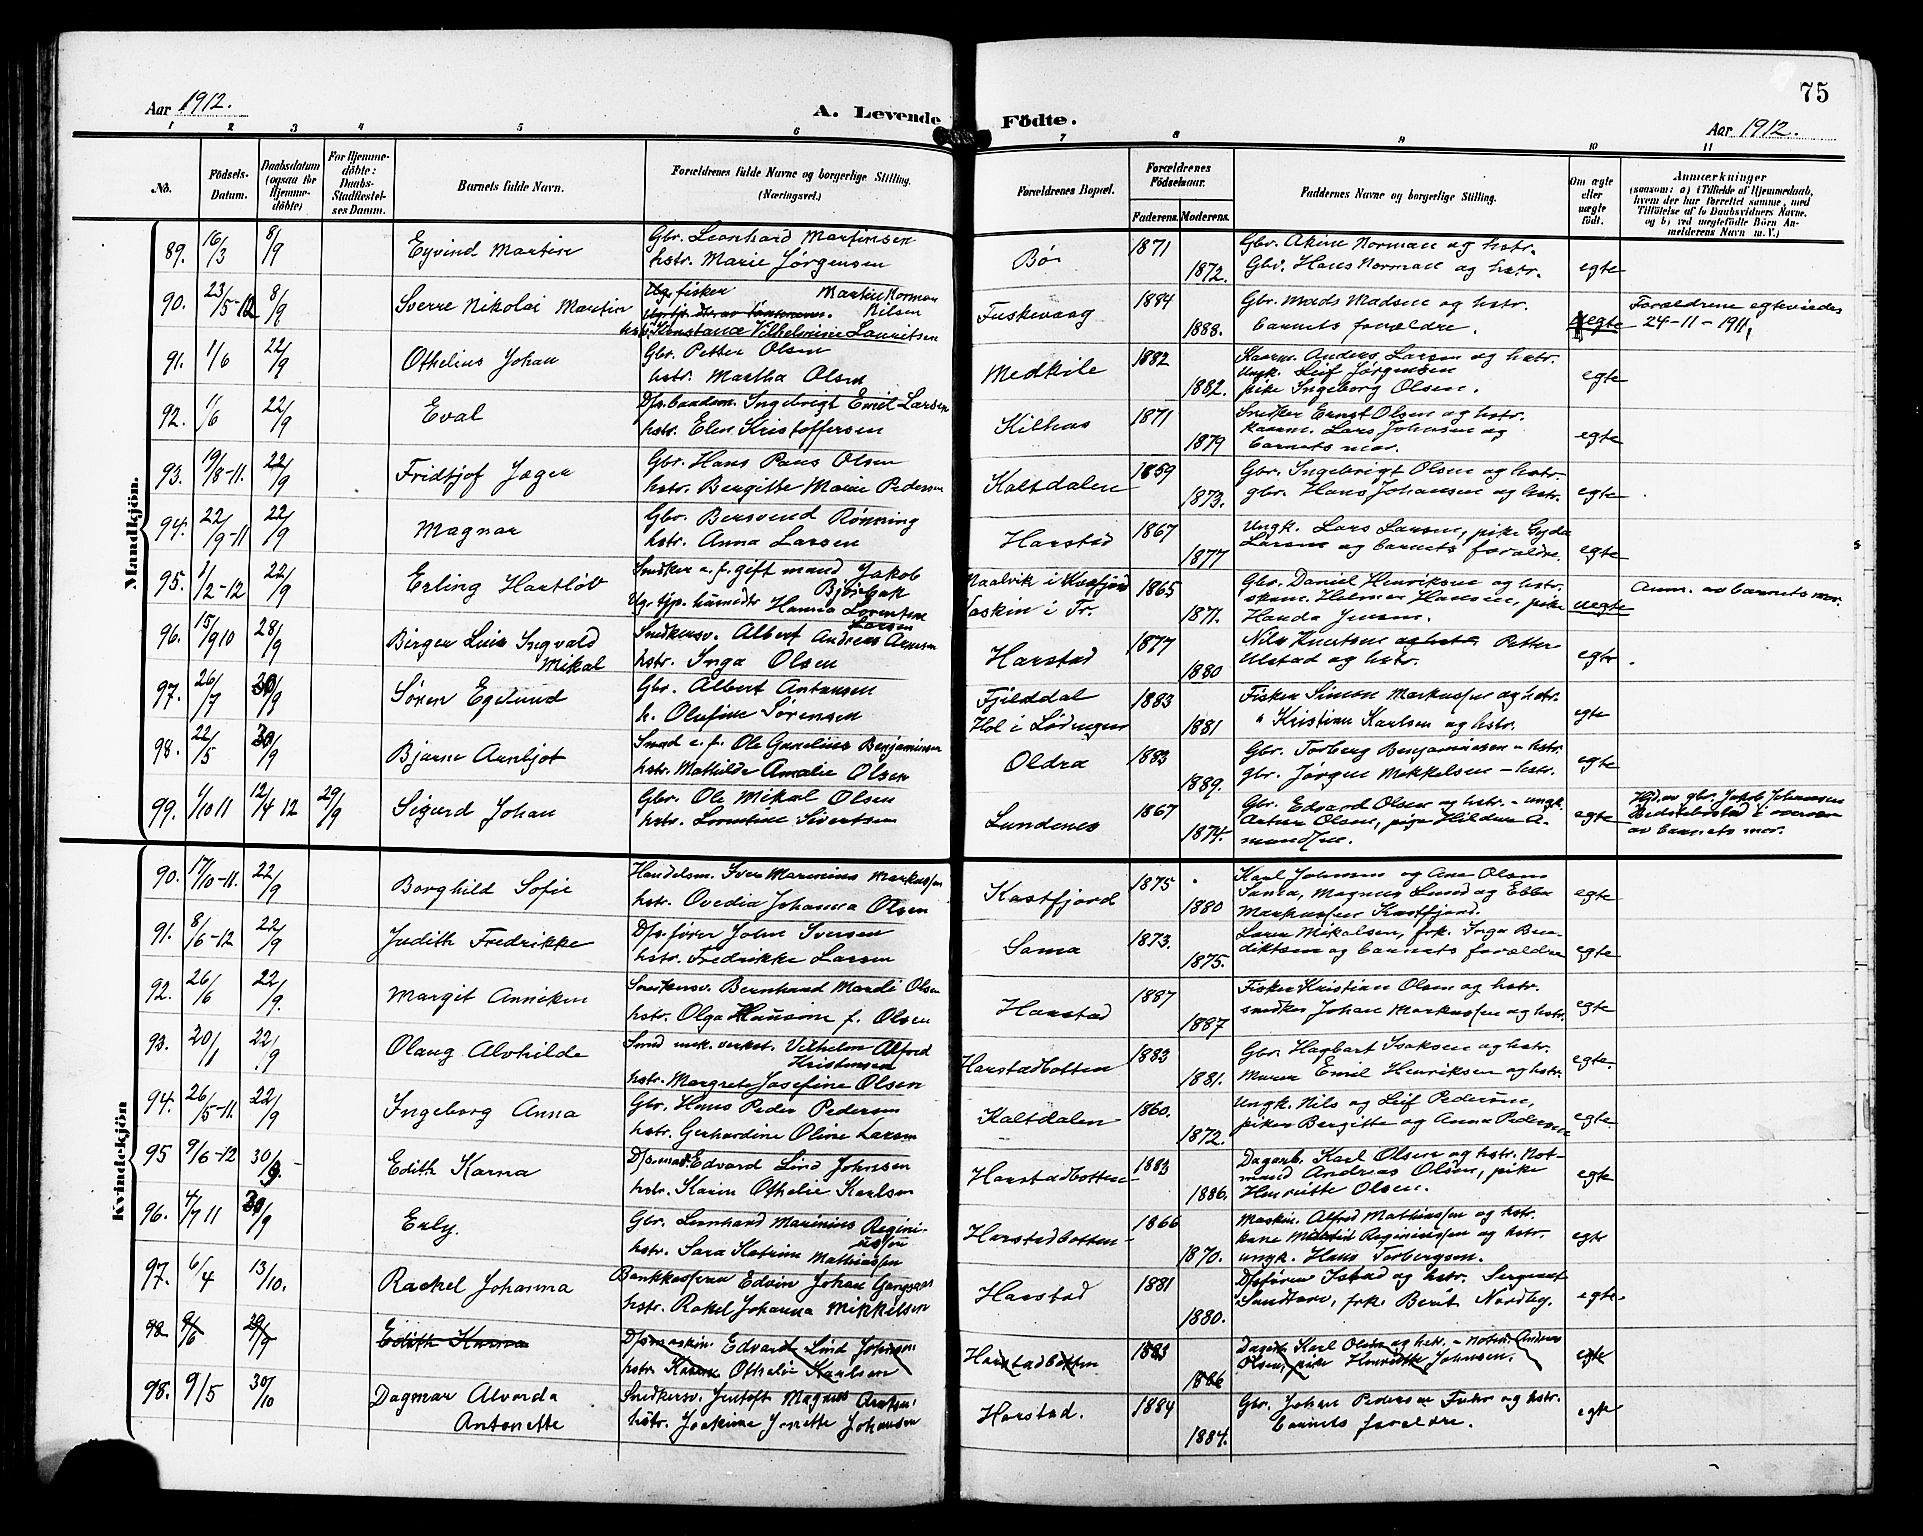 75
Aar 1912.
A. Levende Födte.
Aar 1912.
1 2 3 4 5 6 7 8 9 10 11
No. Födsels-Datum. Daabsdatum (ogsaa for Hjemmedöbte) For Hjemmedöbte: Daabs-Stadfæstelses Datum. Barnets fulde Navn. Forældrenes fulde Navne og borgerlige Stilling. (Næringsvei.) Forældrenes Bopæl. Forældrenes Födselsaar. Faderens. Moderens. Faddernes Navne og borgerlige Stilling. Om ægte eller uægte födt. Anmærkninger
Mandkjön.
89. 16/3 8/9 Eyvind Martin Gbr. Leonhard Martinsen Bø 1871 Gbr. Akim Norman og hstr.
hstr. Marie Jørgensen 1872. Gbr. Hans Norman og hstr. egte
90. 23/5-12 8/9 Sverre Nikolai Martin fisker Martin Norman Nilsen Fuskevaag 1884 Gbr. Mads Madsen og hstr. Forældrene egteviedes
hstr. Konstance Vilhelmine Lauritsen 1888. barnets forældre. egte 24-11-1911
91. 1/6 22/9 Othelius Johan Gbr. Petter Olsen Medkile 1882 Kaarm. Anders Larsen og hstr.
hstr. Martha Olsen 1882. Ungk. Leif Jørgensen
pike Ingeborg Olsen. egte
92. 1/6 22/9 Eval D/s. baadsm. Ingebrigt Emil Larsen Kilhus 1871 Snedker Ernst Olsen og hstr.
hstr. Elen Kristoffersen 1879 kaarm. Lars Johnsen og
barnets mor. egte
93. 19/8-11. 22/9 Fridtjof Jæger Gbr. Hans Paus Olsen Kaltdalen 1859 Gbr. Ingebrigt Olsen og hstr.
hstr. Bergitte Marie Pedersen 1873. gbr. Hans Johansen og hstr. egte
94. 22/9-11 22/9 Magnar Gbr. Bersvend Rønning Harstad 1867 Ungk. Lars Larsen, pike Gyda
hstr. Anna Larsen 1877 Larsen og barnets forældre. egte
95. 1/2-12 22/9 Erling Hartløv Snedker e. f. gift mand Jakob Maalvik i Kvæfjord 1865 Gbr. Daniel Henriksen og hstr. Anm. av barnets mor.
Hanna Lorentine Larsen i Tr. 1871. Helmer Hansen, pike
Handa Jensen. uegte
96. 15/9 10 28/9 Birger Luis Ingvald Mikal Snedkersv. Albert Andreas Arnesen Harstad 1877 Nils Knutsen Petter
hstr. Inga Olsen 1880 Ulstad og hstr. egte
97. 26/7 30/9 Søren Egelund Gbr. Albert Antonsen Fjelddal 1883 Fisker Simon Markussen og hstr.
h. Olufine Sørensen Hol i Lødingen 1881 " Kristian Karlsen og hstr. egte
98. 22/5 30/9 Bjarne Arnljot Smed e. f. Ole Gunelius Benjaminsen Oldra 1883 Gbr. Torberg Benjaminsen - hstr.
hstr. Mathilde Amalie Olsen 1889. gbr. Jørgen Mikkelsen - hstr. egte
99. 1/10 11 12/4 12 29/9 Sigurd Johan Gbr. Ole Mikal Olsen Lundenes 1867 Gbr. Edvard Olsen og hstr. - ungk. Hjd. av gbr. Jakob Johansen
hstr. Lorentine Sivertsen 1874. Artur Olsen, pige Hildur A- egte i overvær
mundsen. av barnets mor.
Kvindekjön
90. 17/10-11. 22/9 Borghild Sofie Handelsm. Iver Marinius Markussen Kastfjord 1875 Karl Johnsen og Ane Olsen
hstr. Ovedia Johanna Olsen 1880 Sama, Magnus Lund og Ebba
Markussen Kastfjord. egte
91. 8/6-12 22/9 Judith Fredrikke D/s. fører John Iversen Sama 1873. Mikalsen, frk. Inga Bene-
hstr. Fredrikke Larsen 1875. diktsen og barnets forældre egte
92. 26/6 22/9. Margit Anniken Snedkersv. Bernhard Mardi Olsen Harstad 1887 Fisker Kristian Olsen og hstr.
hstr. Olga Hansine f. Olsen 1887 snedker Johan Markussen og hstr. egte
93. 20/1 22/9 Olaug Alvhilde Smed mek. verkst. Vilhelm Alfred Kristensen Harstadbotten 1883 Gbr. Hagbart Isaksen og hstr.
hstr. Margrete Josefine Olsen 1881. Murer Emil Henriksen og hstr. egte.
94. 26/5-11. 22/9 Ingeborg Anna Gbr. Hans Peder Pedersen Kaltdalen 1860. Ungk. Nils og Leif Pedersen,
hstr. Gerhardine Oline Larsen 1872. piker Bergitte og Anna Pedersen egte
95 9/6-12 30/9. Edith Karna D/s. mask. Edvard Lind Johnsen Harstadbotten 1883 Dagarb. Karl Olsen og hstr. Not-
hstr. Karen Othelie Karlsen 1886. mand Andreas Olsen, pike
Henriette Olsen. egte
96. 4/7 11 30/9 Erly. Gbr. Leonhard Marinius Reginiussen Harstadbotten 1866 Maskin. Alfred Mathiassen og hstr.
hstr. Sara Katrine Mathiassen 1870. Reginiussen og hstr.
ungk. Hans Torbergsen. egte
97. 6/4 13/10. Rachel Johanna Bankkasserer Edvin Johan Harstad 1881 D/s fører Istad og hstr. Sergeant
hstr. Rakel Johanna Mikkelsen 1880. Sundtøm, frk. Berit Nordby. egte
98 9/6 29/9 Edith Karna D/s maskin. Edvard Lind Johnsen Harstadbotten 1883 Dagarb. Karl Olsen og hstr. - Notm. Andreas
hstr. Karen Othelie Karlsen 1886 Olsen, pike Henriette Johnsen. egte
98. 9/5 30/10 Dagmar Alvorda Antonette Snedkersv. Jentoft Magnus Arntsen Harstad. 1884 Gbr. Johan Pedersen og hstr.
hstr. Joakime Jonette Johansen 1884. barnets forældre. egte